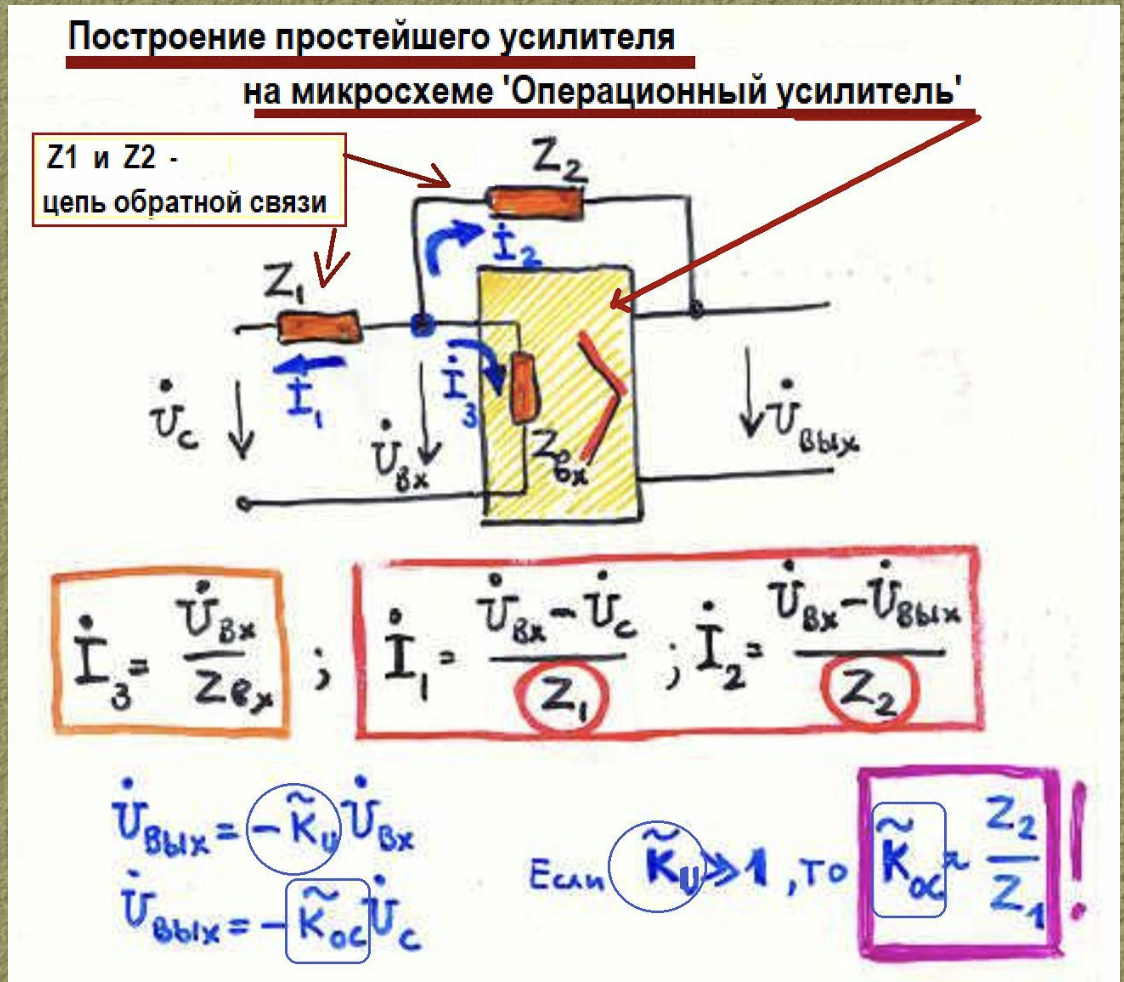 Построение простейшего усилителя
на микросхеме 'Операционный усилитель'
Z1 и Z2 -
цепь обратной связи
Z₂
İ₂
Z₁
İ₁
İ₃
U̇с
U̇вх
Zвх
U̇вых
İ₃ = U̇вх / Zвх ; İ₁ = (U̇вх – U̇с) / Z₁ ; İ₂ = (U̇вх – U̇вых) / Z₂
U̇вых = – K̃U U̇вх
U̇вых = – K̃ос U̇с
Если K̃U ≫ 1 , то K̃ос ≈ Z₂ / Z₁ !